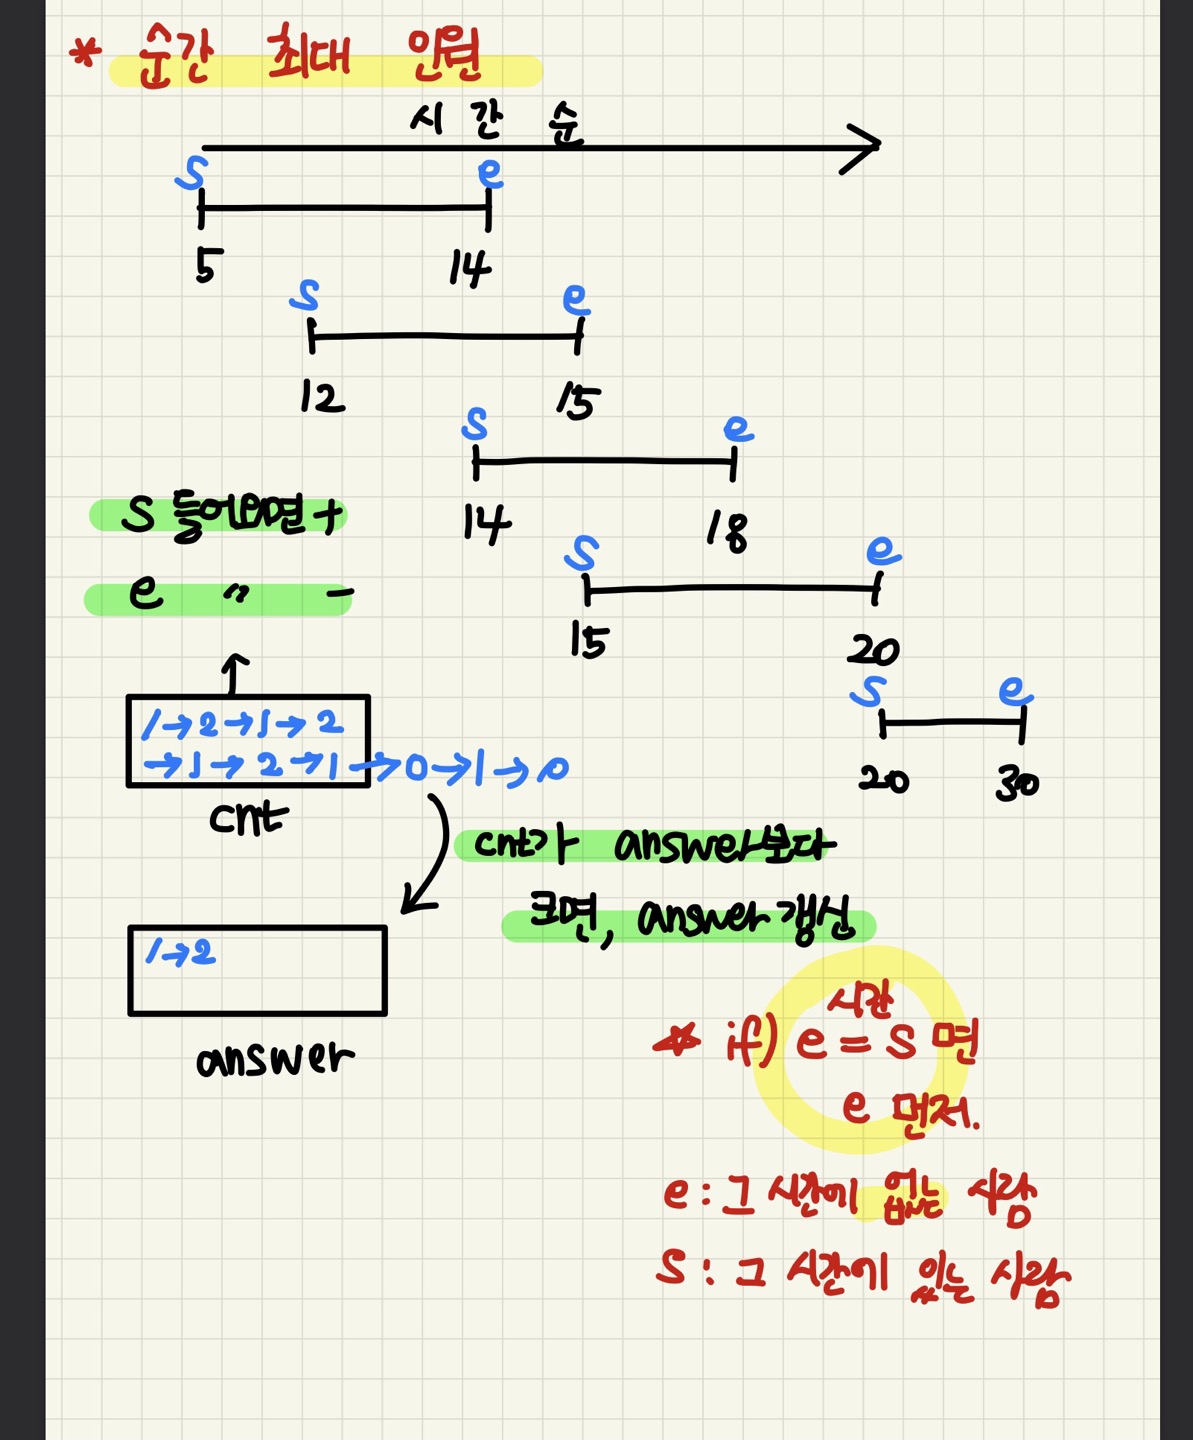 * 순간 최대 인원
시간순
s e
5 14
s e
12 15
s e
14 18
s e
15 20
s e
20 30
s 들어오면 +
e 〃 -
1→2→1→2
→1→2→1→0→1→0
cnt
cnt가 answer보다
크면, answer 갱신
1→2
answer
시간
★ if) e = s 면
e 먼저.
e : 그 시간에 없는 사람
s : 그 시간에 있는 사람